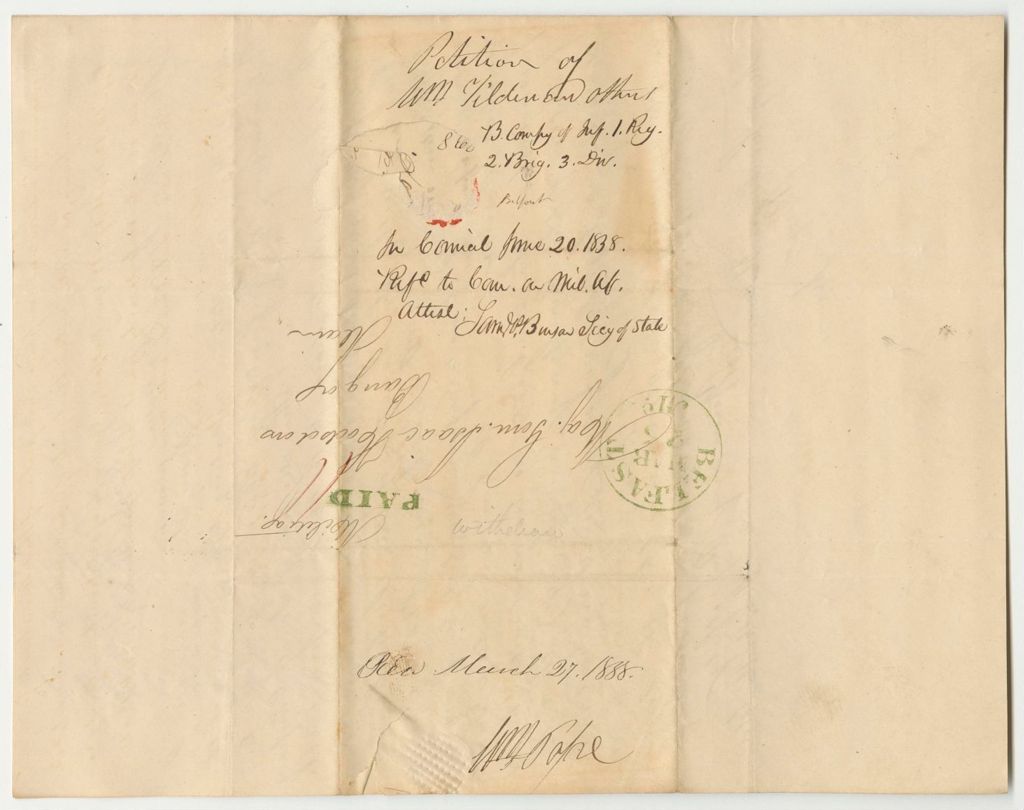 Petition of
Wm Tilden and others
B. Compy of Inf. 1. Reg.
2. Brig. 3. Div.
Belfast
In Council June 20. 1838.
Refd to Com. on Mil. Aff.
Attest:
Saml P. Benson Secy of State
BELFAST Me.
MAR
Maj. Gen. Isaac Hodsdon
Bangor
PAID
withdraw
Recd March 27. 1838.
Wm Pope